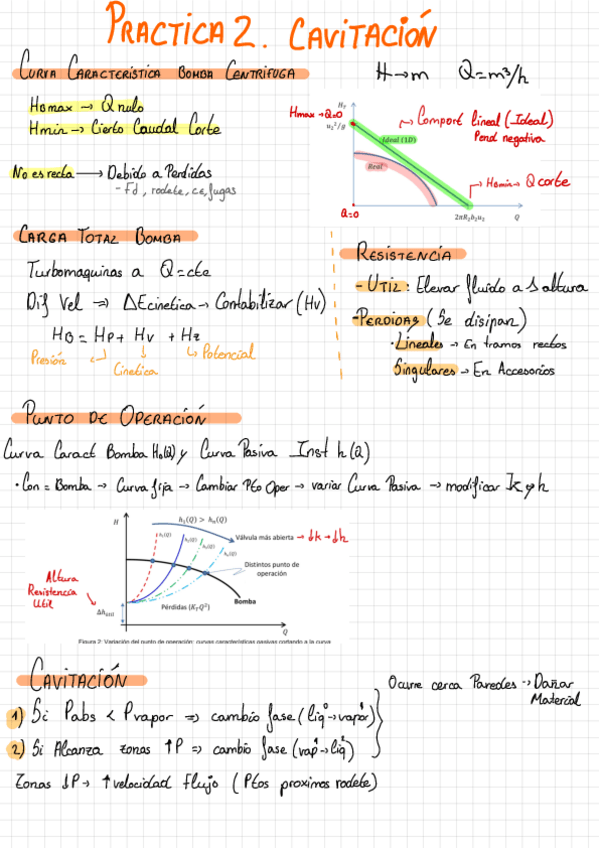 PRACTICA 2. CAVITACIÓN
CURVA CARACTERÍSTICA BOMBA CENTRIFUGA
H→m Q=m³/h
HBmax → Q nulo
Hmin → Cierto Caudal Corte
No es recta → Debido a Perdidas
- Fd, rodete, ce, fugas
Hmax→Q=0
H_T
u₂²/g
Ideal (1D)
Real
→ Comport lineal (Ideal)
Pend negativa
→ HBmin→ Q corte
Q=0
2πR₂b₂u₂
Q
CARGA TOTAL BOMBA
Turbomaquinas a Q=cte
Dif Vel ⇒ ΔEcinetica → Contabilizar (Hv)
HB = HP + HV + HZ
Presión
Cinetica
Potencial
RESISTENCIA
- UTIL: Elevar fluido a 1 altura
- PERDIDAS (Se disipan)
· Lineales → En tramos rectos
Singulares → En Accesorios
PUNTO DE OPERACIÓN
Curva Caract Bomba HB(Q) y Curva Pasiva Inst h(Q)
· Con = Bomba → Curva fija → Cambiar Pto Oper → variar Curva Pasiva → modificar K y h
H
h₁(Q) > hₙ(Q)
h₁(Q)
h₂(Q)
h₃(Q)
h₄(Q)
Válvula más abierta → ↓k → ↓h
Distintos punto de
operación
Altura
Resistencia
Util
Δh_útil
Pérdidas (K_T Q²)
Bomba
Q
Figura 2: Variación del punto de operación: curvas características pasivas cortando a la curva
CAVITACIÓN
1) Si Pabs < Pvapor ⇒ cambio fase (liqº→vapor)
2) Si Alcanza zonas ↑P ⇒ cambio fase (vapº→liqº)
Ocurre cerca Paredes → Dañar
Material
Zonas ↓P → ↑velocidad flujo (Ptos proximos rodete)